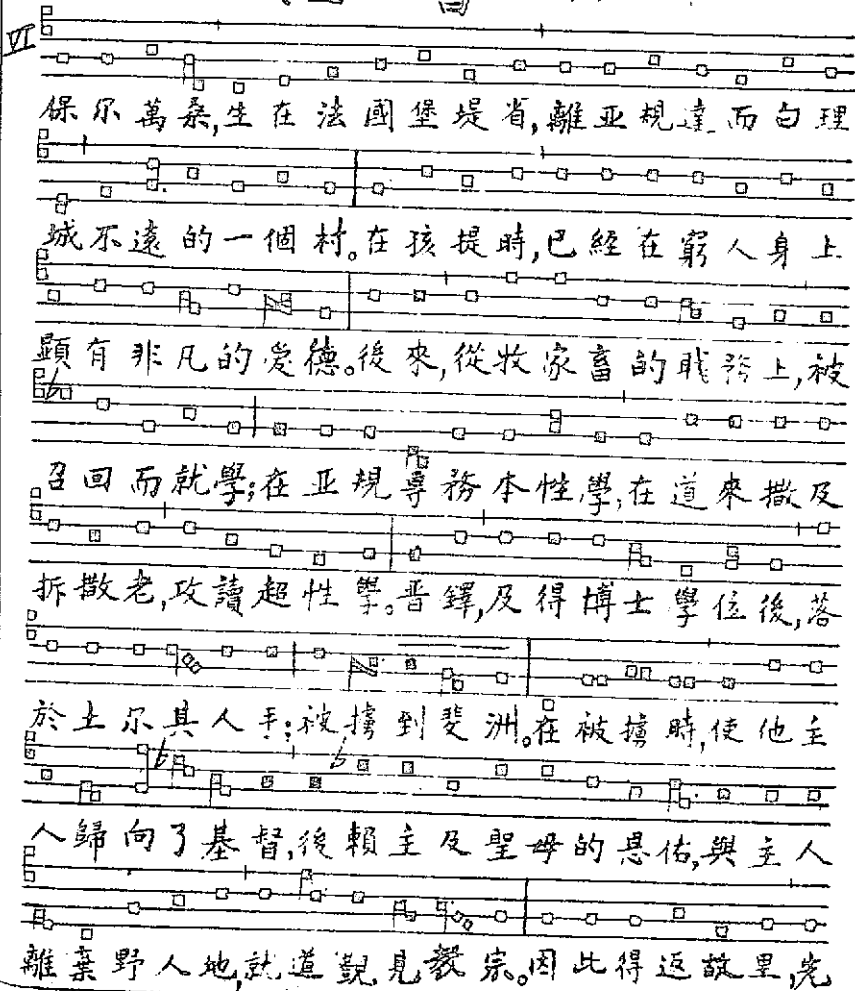 VI
保尔萬桑,生在法國堡堤省,離亚規達而白理
城不遠的一個村。在孩提時,已經在窮人身上
顯有非凡的愛德。後來,從牧家畜的职務上,被
召回而就學;在亚規專務本性學,在道來撒及
拆撒老,攻讀超性學。晋鐸,及得博士學位後,落
於土尔其人手;被擄到斐洲。在被擄時,使他主
人歸向了基督,後賴主及聖母的恩佑,與主人
離棄野人地,就道覲見教宗。因此得返故里,先